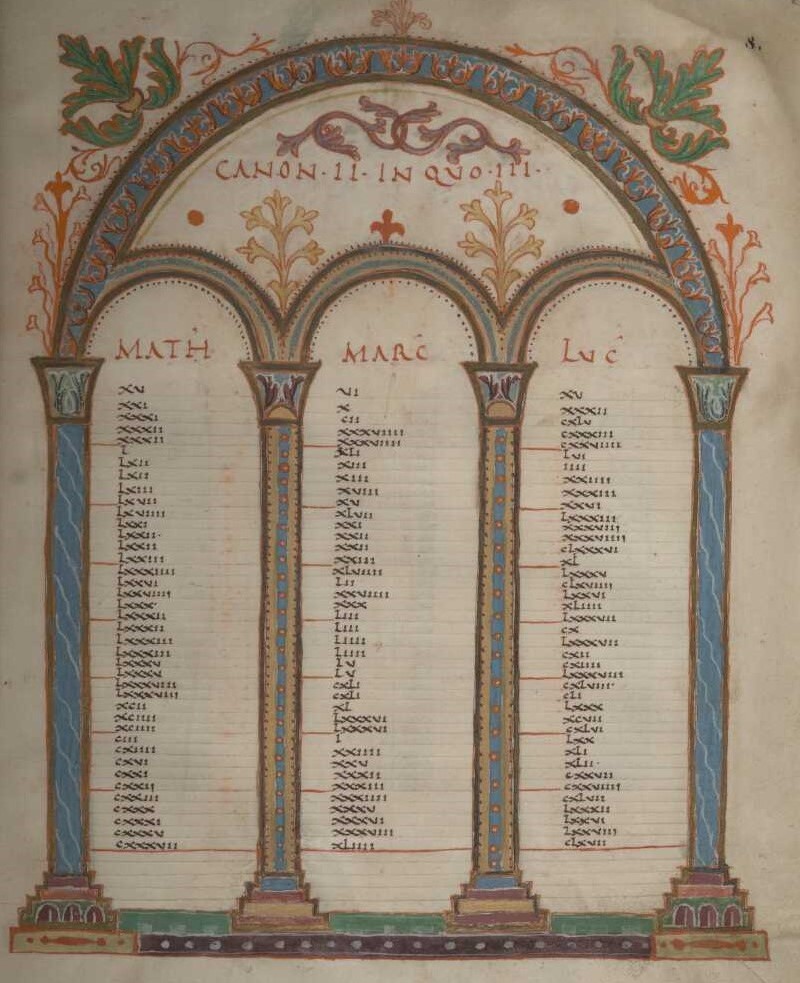 8.
CANON·II·IN QUO·III·
MATH
xv
xxi
xxxi
xxxii
xxxii
l
lxii
lxii
lxiii
lxvii
lxviiii
lxxi
lxxii·
lxxii
lxxiii
lxxxiiii
lxxvi
lxxviiii
lxxx·
lxxxii
lxxxii
lxxxiii
lxxxiii
lxxxv
lxxxv
lxxxviii
lxxxviii
xcii
xciiii
xciiii
ciii
cxiiii
cxvi
cxxi
cxxii
cxxiii
cxxx
cxxxi
cxxxv
cxxxvii
MARC
vi
x
cii
xxxviiii
xxxviiii
xli
xiii
xiii
xviii
xv
xlvii
xxi
xxii
xxii
xxiii
xlviiii
lii
xxviiii
xxx
liii
liii
liiii
liiii
lv
lv
cxli
cxli
xl
lxxxvi
lxxxvi
l
xxiiii
xxv
xxxii
xxxiii
xxxiiii
xxxv
xxxvi
xxxviii
xliiii
LUC
xv
xxxii
cxlv
cxxxiii
cxxviiii
lvi
iiii
xxiiii
xxxiii
xxvi
lxxxiii
xxxviii
xxxviiii
clxxxvi
xl
lxxxv
clxviiii
lxxvi
xliiii
lxxxvii
cx
lxxxvii
cxii
cxiiii
lxxxviii
cxlviii·
cli
lxxx
xcvii
cxlvi
lxx
xli
xlii·
cxxvii
cxxviiii
cxlvii
lxxxii
lxxvi
lxxviii
clxvii